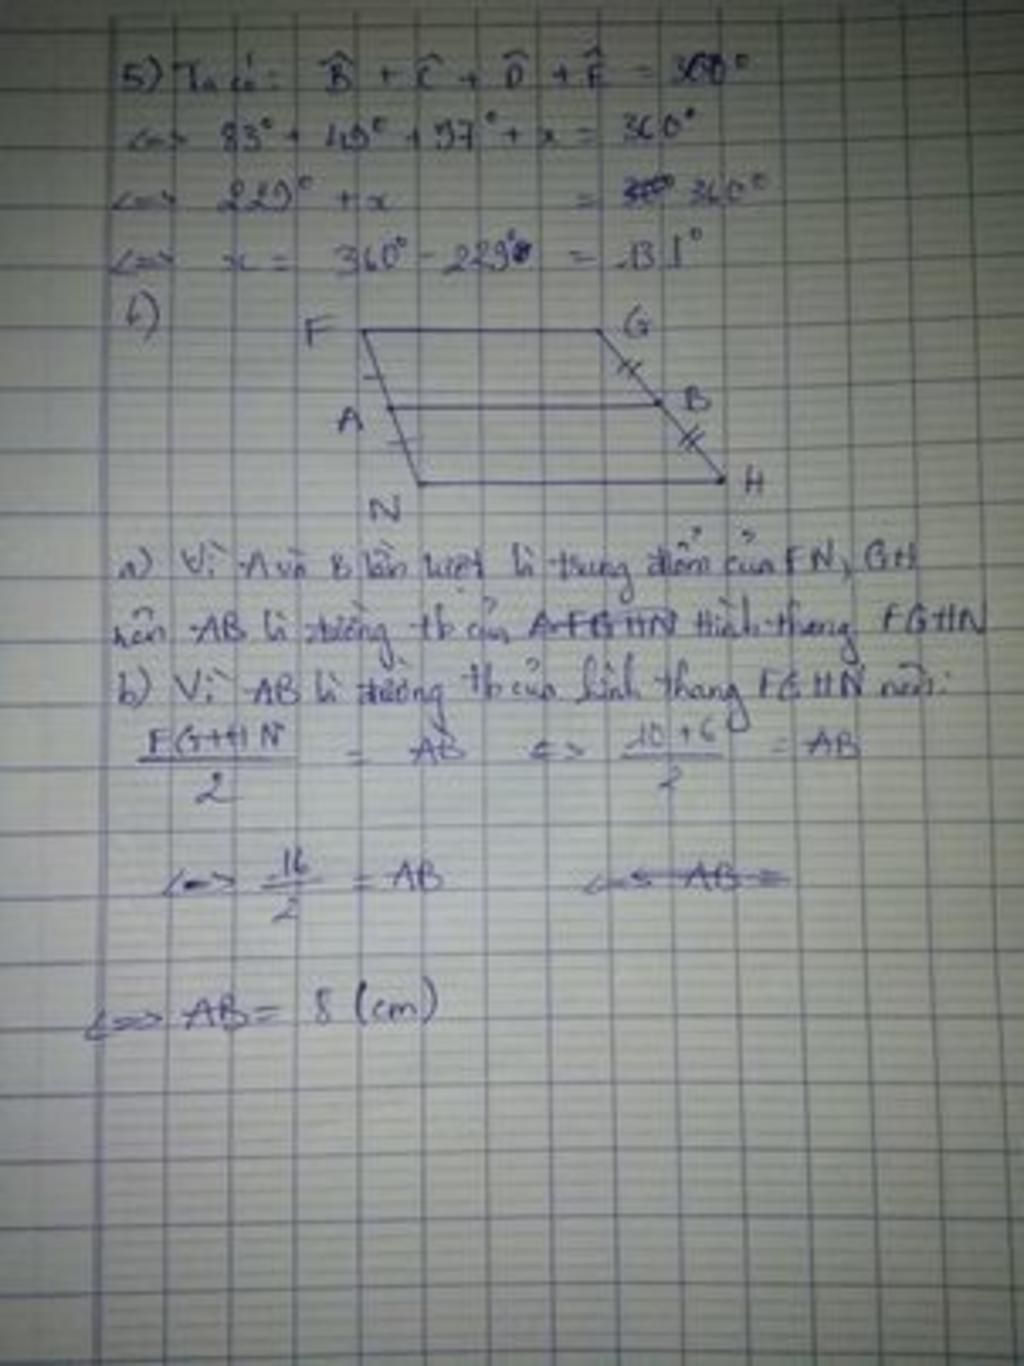 5) Ta có: B̂ + Ĉ + D̂ + Ê = 360°
<=> 83° + 49° + 97° + x = 360°
<=> 229° + x = 360°
<=> x = 360° - 229° = 131°
6)
F G
A B
N H
a) Vì A và B lần lượt là trung điểm của FN, GH
nên AB là đường tb của hình thang FGHN
b) Vì AB là đường tb của hình thang FGHN nên:
FG+HN/2 = AB <=> 10+6/2 = AB
<=> 16/2 = AB <=> AB =
<=> AB = 8 (cm)